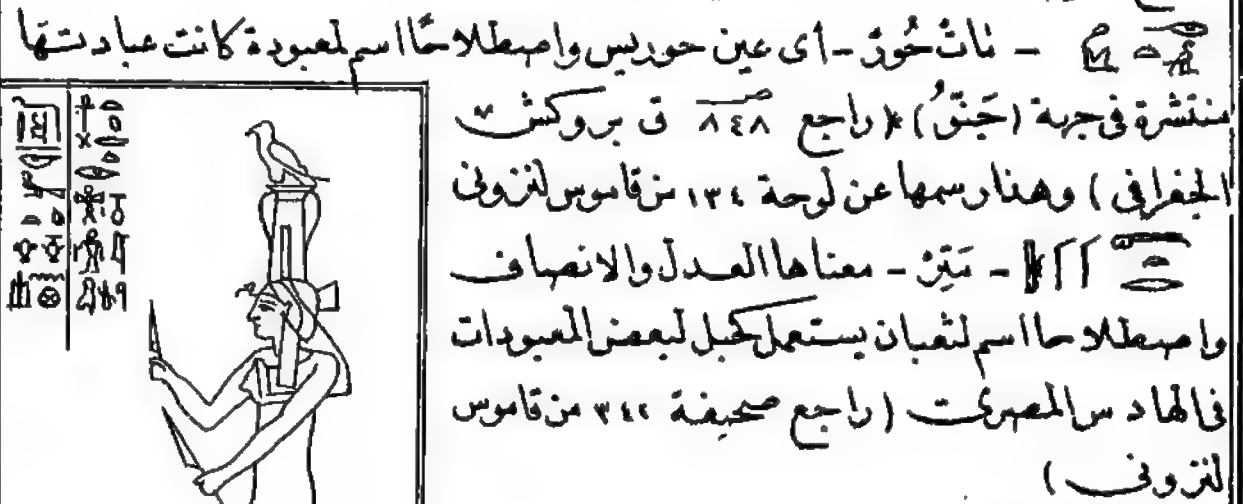 – ناتْ حُورْ – أى عين حوريس واصطلاحًا اسم لمعبودة كانت عبادتها
منتشرة فى جهة (حَبَنّوُ) (راجع صـ ٨٤٨ ق بروكش
الجغرافى) وهنا رسمها عن لوحة ١٣٤ من قاموس لنزونى
– مَتِرْ – معناها العدل والانصاف
واصطلاحا اسم لثعبان يستعمل كحبل لبعض المعبودات
فى الهادس المصرى (راجع صحيفة ٣٤٤ من قاموس
لنزونى)